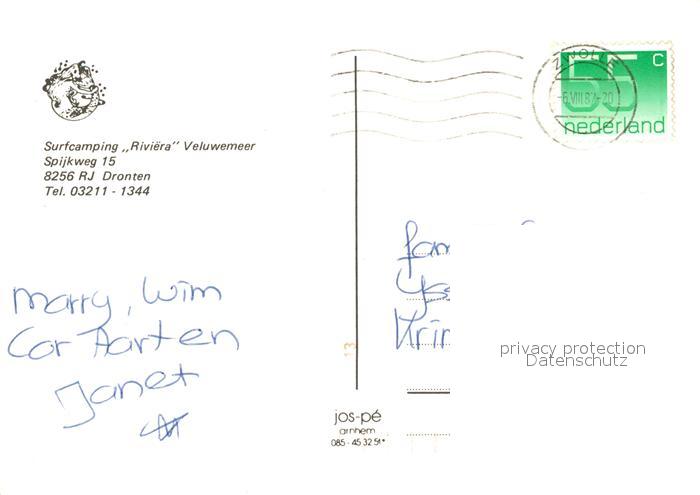 Surfcamping „Riviëra” Veluwemeer
Spijkweg 15
8256 RJ Dronten
Tel. 03211 - 1344
Marry, Wim
Cor Aarten
Janet
ZWOLLE
-6.VIII.8
-20
55 c
nederland
fam
Krim
privacy protection
Datenschutz
13
jos-pé
arnhem
085 - 45 32 51*